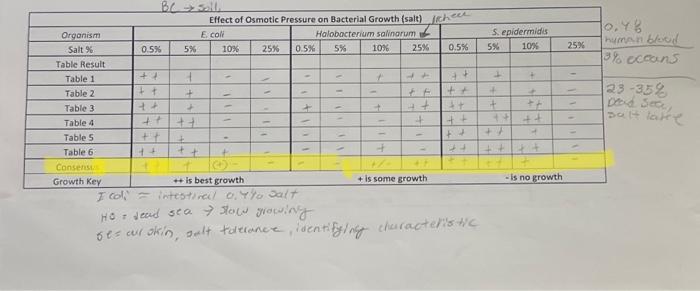 BC → soil,
Effect of Osmotic Pressure on Bacterial Growth (salt)
Organism E. coli Halobacterium salinarum S. epidermidis
Salt % 0.5% 5% 10% 25% 0.5% 5% 10% 25% 0.5% 5% 10% 25%
Table Result
Table 1 ++ + - - - - + ++ ++ + + -
Table 2 ++ + - - - - - ++ ++ + + -
Table 3 ++ + - - + - + ++ ++ + ++ -
Table 4 ++ ++ - - - - - + ++ ++ ++ -
Table 5 ++ + - - - - - - ++ ++ + -
Table 6 ++ ++ + - - - + ++ ++ ++ -
Consensus ++ + (+) - - - +/- ++ ++ ++ + -
Growth Key ++ is best growth + is some growth - is no growth
0.4%
human blood
3% oceans
23-35%
Dead Sea,
salt lake
E coli = intestinal 0.4% salt
HS = dead sea → slow growing
se = our skin, salt tolerance, identifying characteristic